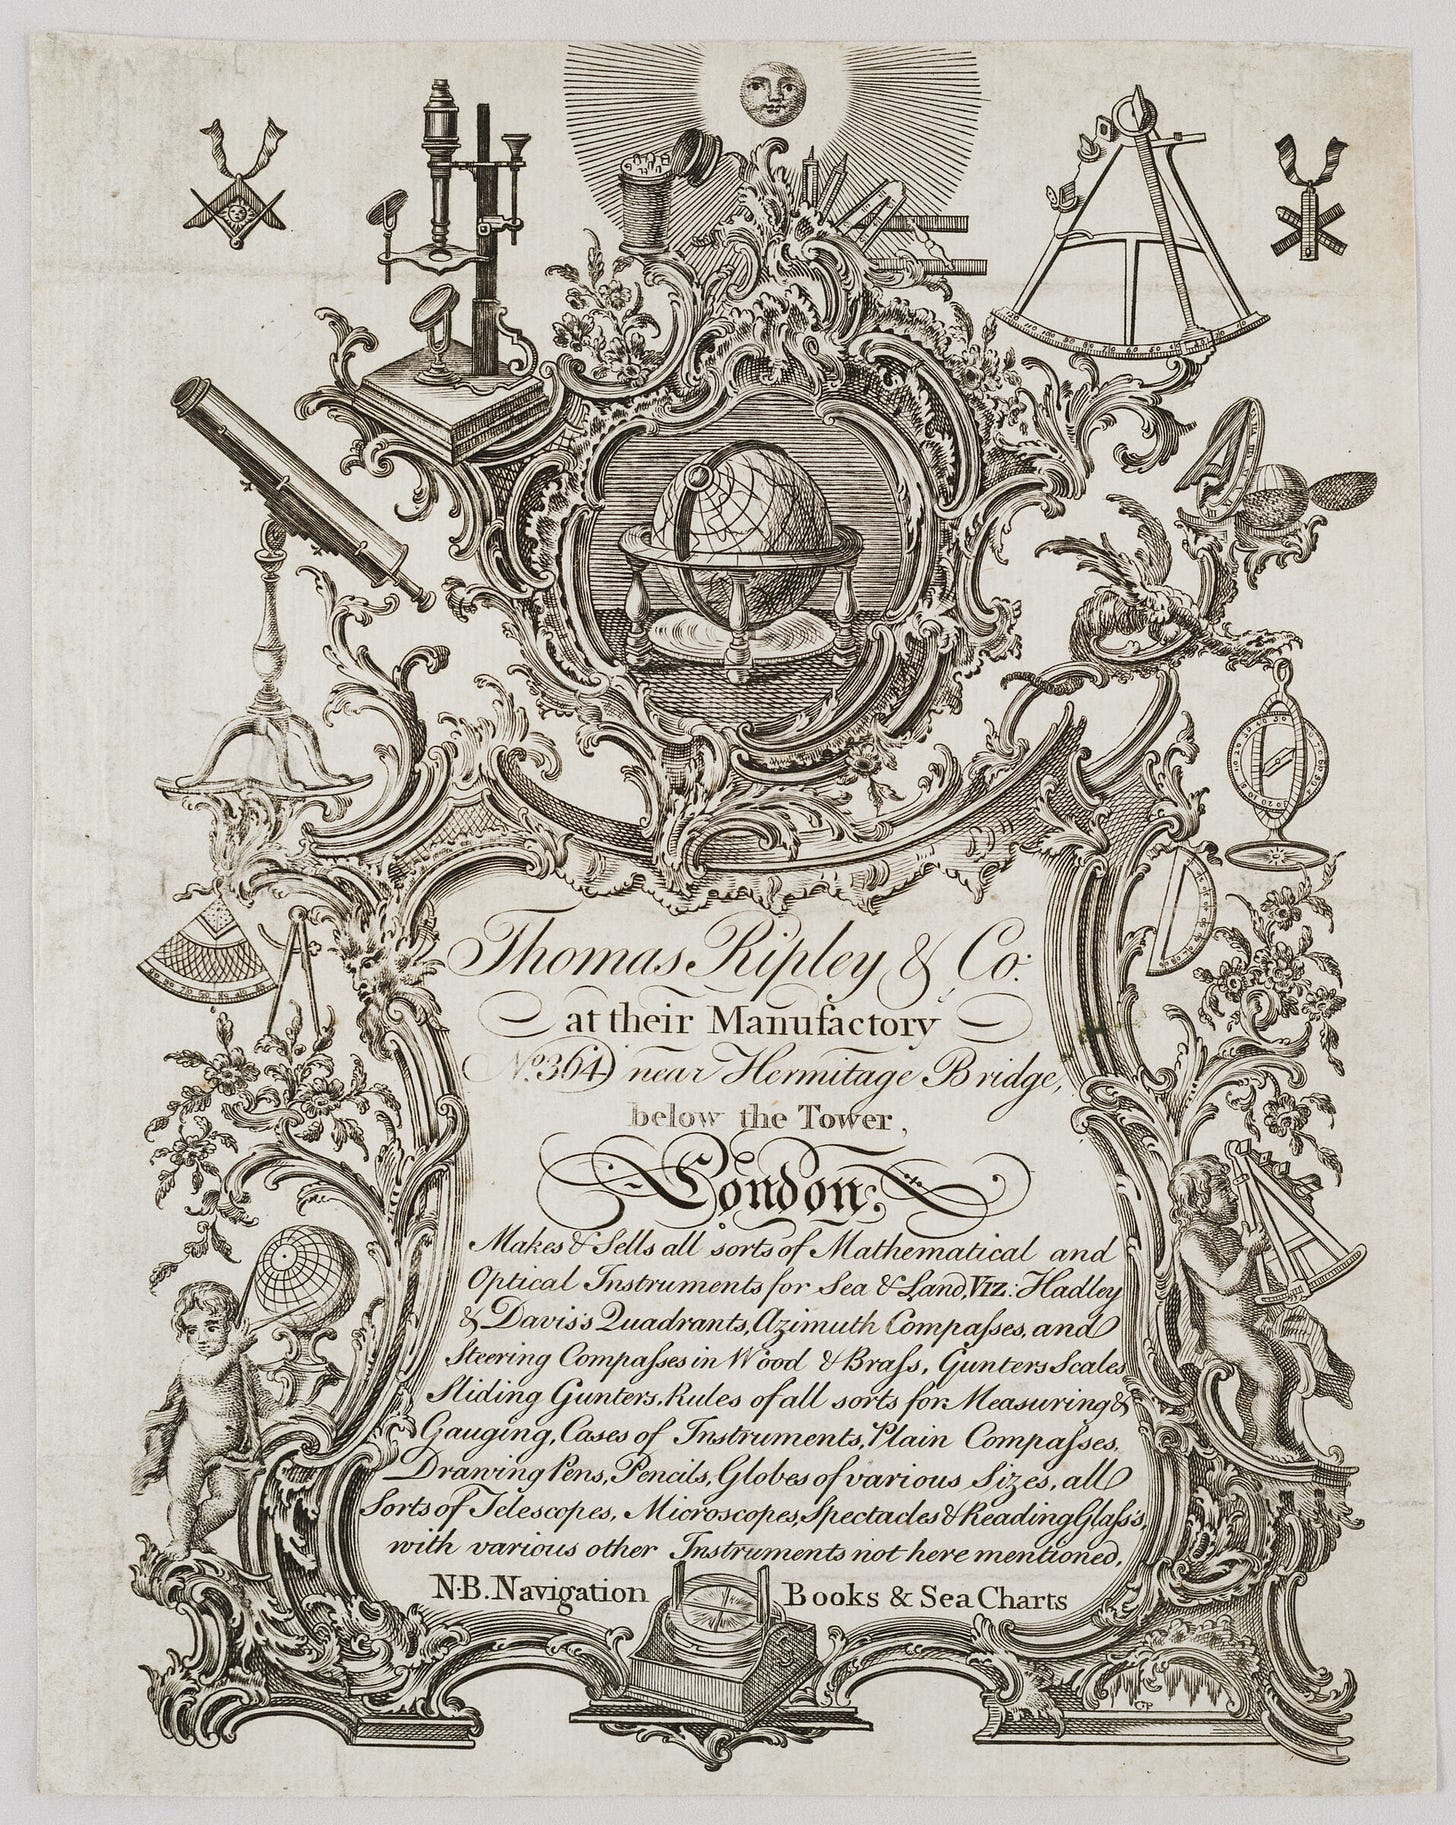 Thomas Ripley & Co:
at their Manufactory
No. 364) near Hermitage Bridge,
below the Tower,
London;
Makes & Sells all sorts of Mathematical and
Optical Instruments for Sea & Land, Viz: Hadley
& Davis's Quadrants, Azimuth Compaſses, and
Steering Compaſses in Wood & Braſs, Gunters Scales
Sliding Gunters, Rules of all sorts for Measuring &
Gauging, Cases of Instruments, Plain Compaſses,
Drawing Pens, Pencils, Globes of various Sizes, all
Sorts of Telescopes, Microscopes, Spectacles & Reading Glaſs's,
with various other Instruments not here mentioned,
N.B. Navigation Books & Sea Charts